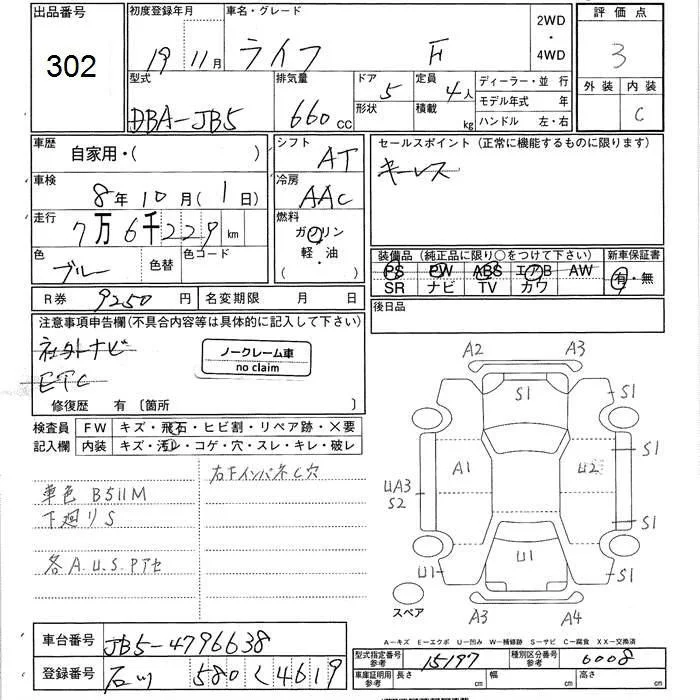 出品番号 302
初度登録年月 19 11月
車名・グレード ライフ F
2WD・4WD
評価点 3
外装 内装 C
型式 DBA-JB5
排気量 660cc
ドア 5 形状
定員 4人 積載 kg
ディーラー・並 行
モデル年式 年
ハンドル 左・右
車歴 自家用・( )
シフト AT
セールスポイント (正常に機能するものに限ります)
キーレス
車検 8年10月(1日)
冷房 AAC
走行 7万6千229km
燃料 ガソリン 軽・油 ( )
色 ブルー 色替 色コード
装備品 (純正品に限り○をつけて下さい) 新車保証書
PS PW ABS エアB AW 有・無
SR ナビ TV カワ
R券 9250円 名変期限 月 日
後日品
注意事項申告欄(不具合内容等は具体的に記入して下さい)
社外ナビ
ETC
ノークレーム車
no claim
修復歴 有 〔箇所 〕
検査員記入欄
FW キズ・飛石・ヒビ割・リペア跡・×要
内装 キズ・汚レ・コゲ・穴・スレ・キレ・破レ
右下インパネC穴
車色 B511M
下廻りS
各A.U.S.Pアセ
A2 A3
S1 S1
S1
A1 U2
UA3
S2
S1
U1
U1 S1
スペア
A3 A4
A-キズ E-エクボ U-凹み W-補修跡 S-サビ C-腐食 XX-交換済
車台番号 JB5-4796638
登録番号 石川 580 く 4619
型式指定番号 参考 15197
種別区分番号 参考 6008
車庫証明用 参考 長さ 幅 高さ